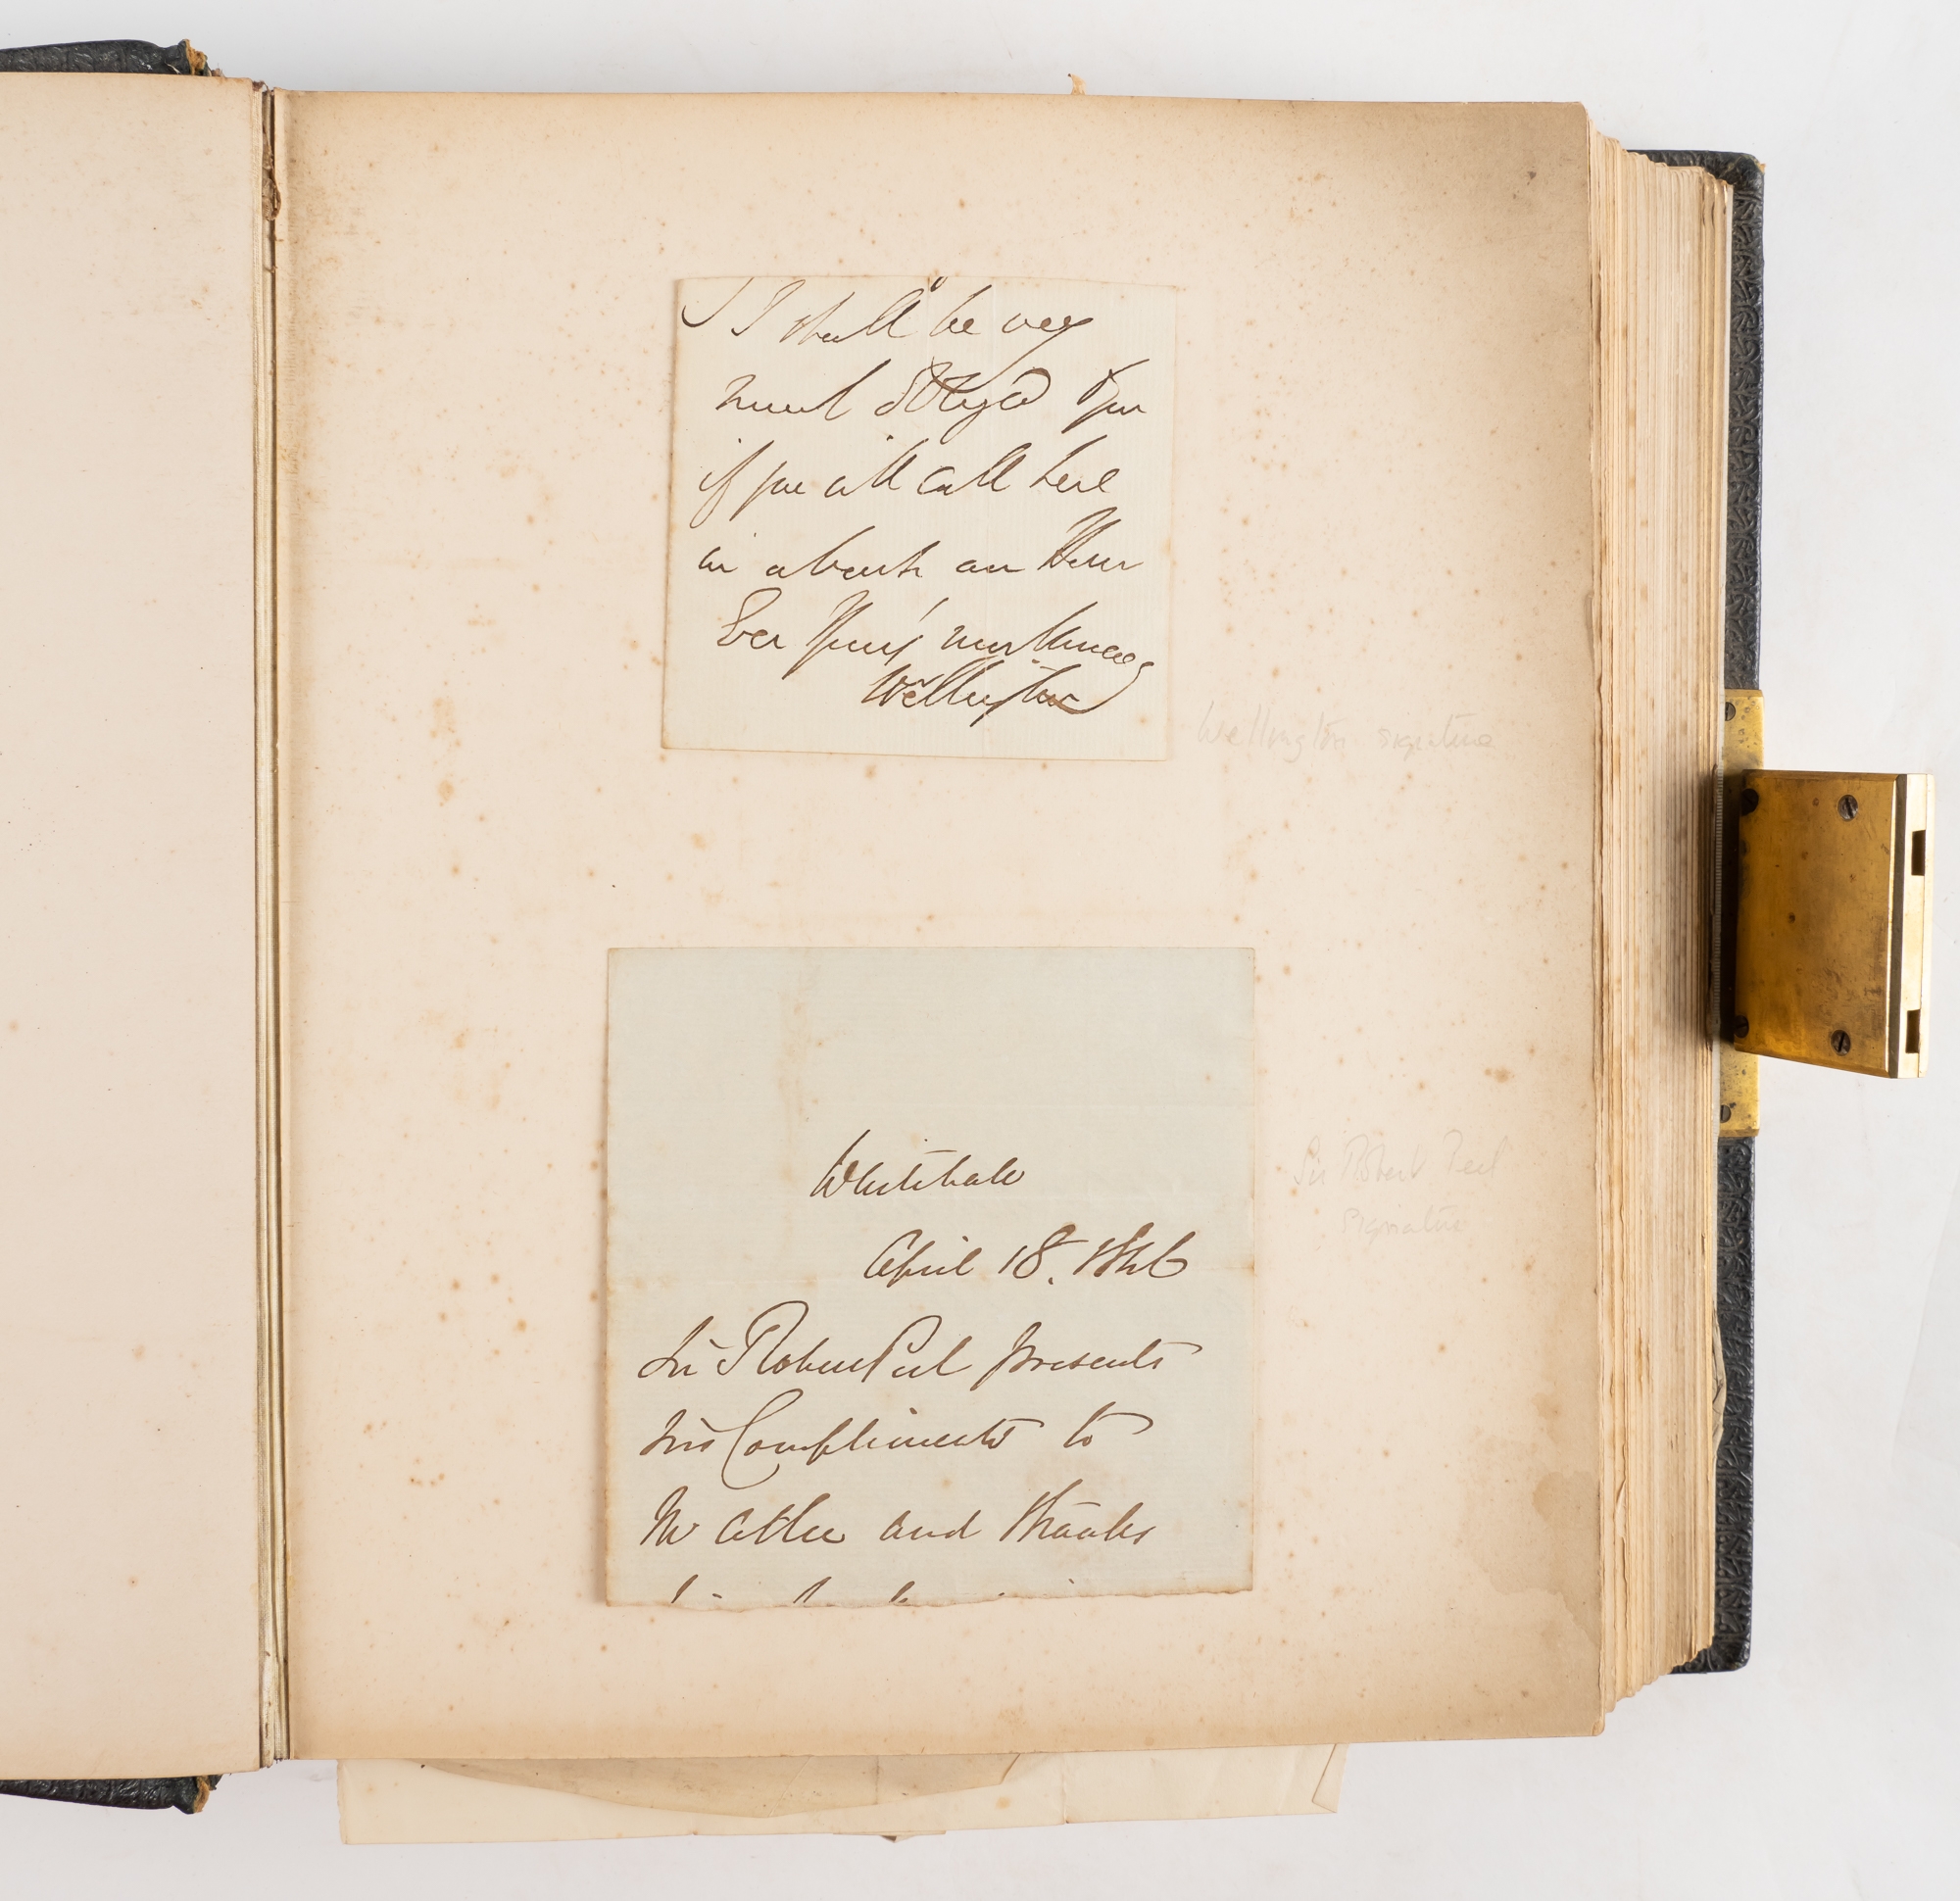 I shall be very
much obliged to you
if you will call here
in about an Hour
Ever Yours most sincerely
Wellington
Wellington signature
Whitehall
April 18. 1846
Sir Robert Peel presents
his Compliments to
Mr and thanks
Sir Robert Peel
signature